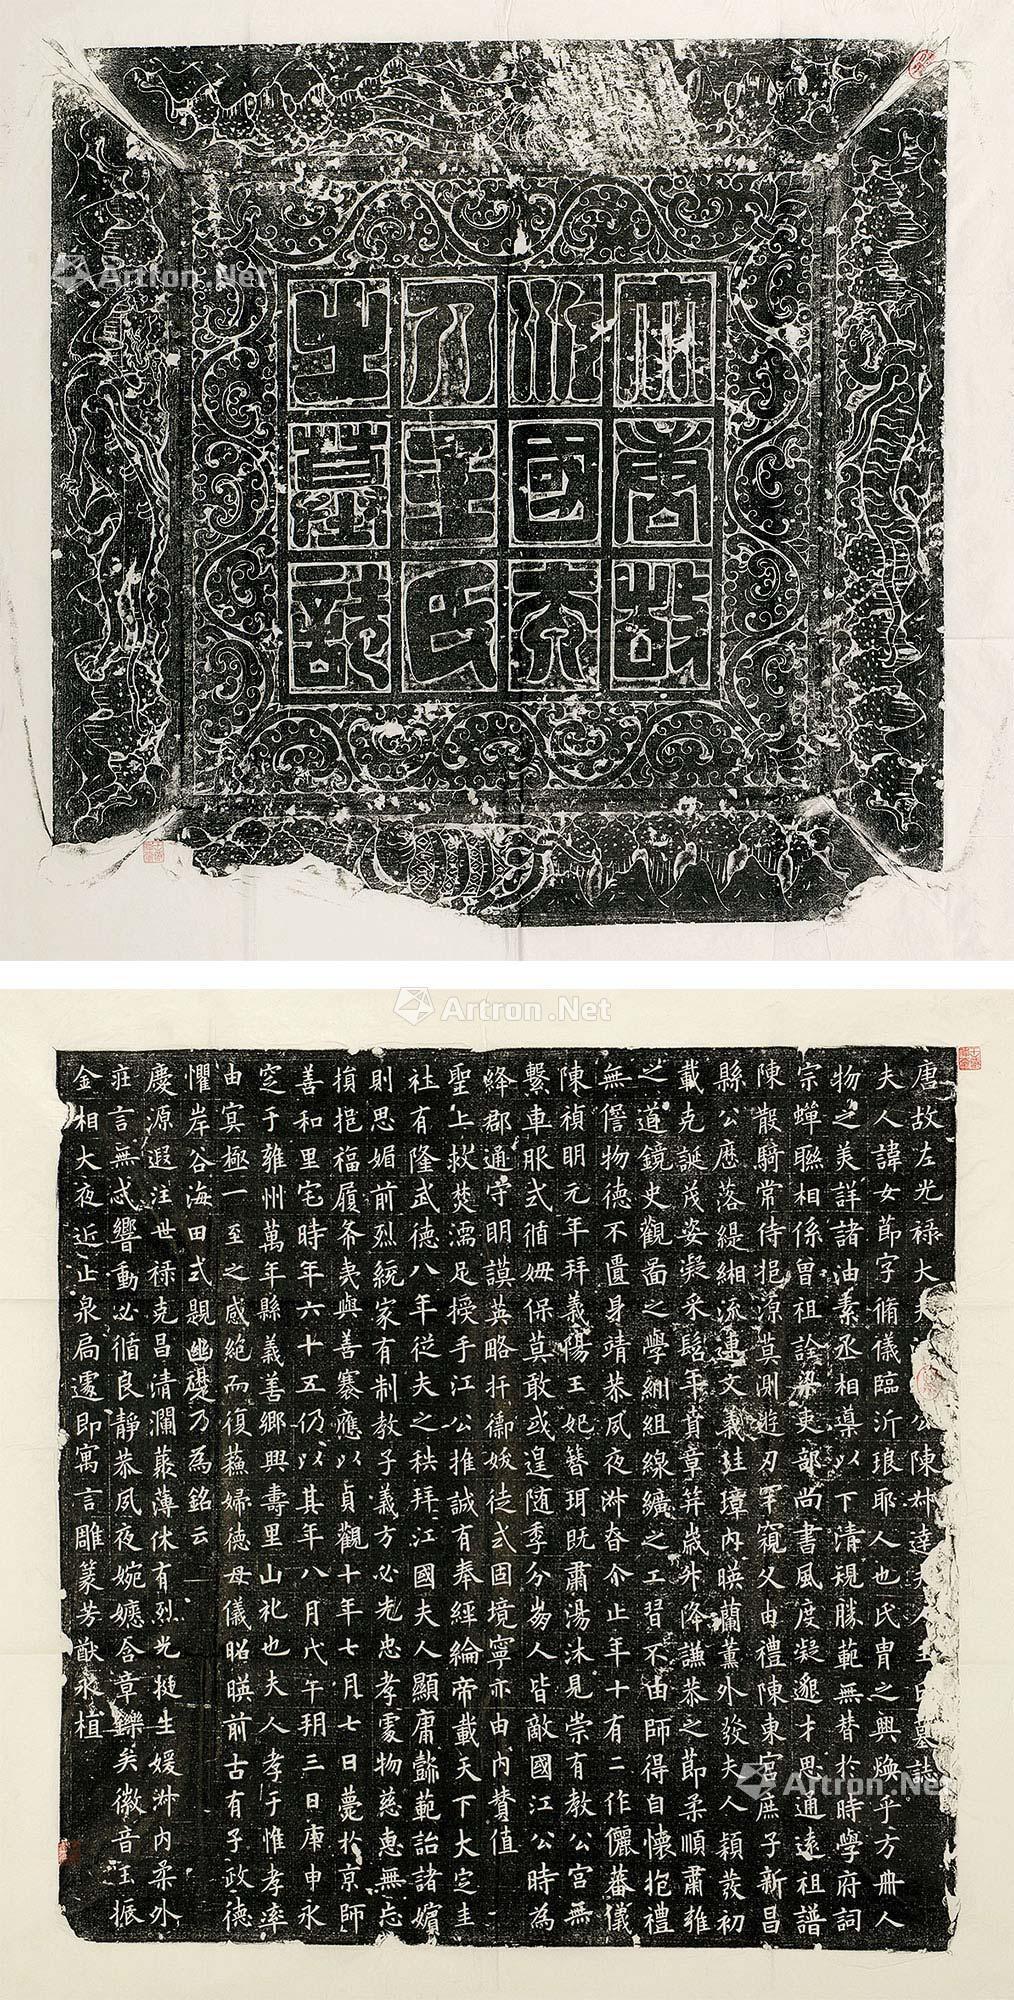 大唐故
江國夫
人王氏
之墓誌
Artron.Net
Artron.Net
唐故左光祿大夫 公陳 達 人王氏墓誌
夫人諱女節字脩儀臨沂琅耶人也氏胄之興煥乎方冊人
物之美詳諸油素丞相導以下清規勝範無替於時學府詞
宗蟬聯相係曾祖詮梁吏部尚書風度凝邈才思通遠祖譜
陳散騎常侍挹源莫測遊刃罕窺父由禮陳東宮庶子新昌
縣公歷落緹緗流連文義珪璋內暎蘭薰外發夫人穎發初
載克誕茂姿凝采髫年賁章笄歲外降謙恭之節柔順肅雍
之道鏡史觀圖之學紃組線纊之工習不由師得自懷抱禮
無僭物德不匱身靖恭夙夜淑昚 止年十有二作儷蕃儀
陳禎明元年拜義陽王妃簪珥既肅湯沐見崇有教公宮無
繫車服式循姆保莫敢或遑隨季分崩人皆敵國江公時為
絳郡通守明謨英略扞衞 徒式固境寧亦由內贊值
聖上救焚濡足授手江公推誠有奉經綸帝載天下大定圭
社有隆武德八年從夫之秩拜江國夫人顯庸懿範詒諸嬪
則思媚前烈統家有制教子義方必先忠孝處物慈惠無忘
損挹福履 與善褰應以貞觀十年七月七日薨於京師
善和里宅時年六十五仍以其年八月戊午朔三日庚申永
窆于雍州萬年縣義善鄉興壽里山礼也夫人孝于惟孝率
由冥極一至之感絕而復蘇婦德母儀昭暎前古有子政德
懼岸谷海田式題幽礎乃為銘云
慶源遐注世祿克昌清瀾藂薄休有烈光挺生媛淑內柔外
莊言無忒響動必循良靜恭夙夜婉嬺含章鑠矣徽音玉振
金相大夜近止泉局遽即寓言雕篆芳猷永植
Artron.Net